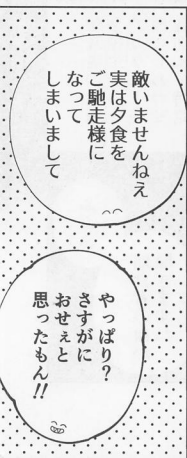 敵いませんねえ
実は夕食を
ご馳走様に
なって
しまいまして
やっぱり?
さすがに
おせぇと
思ったもん!!